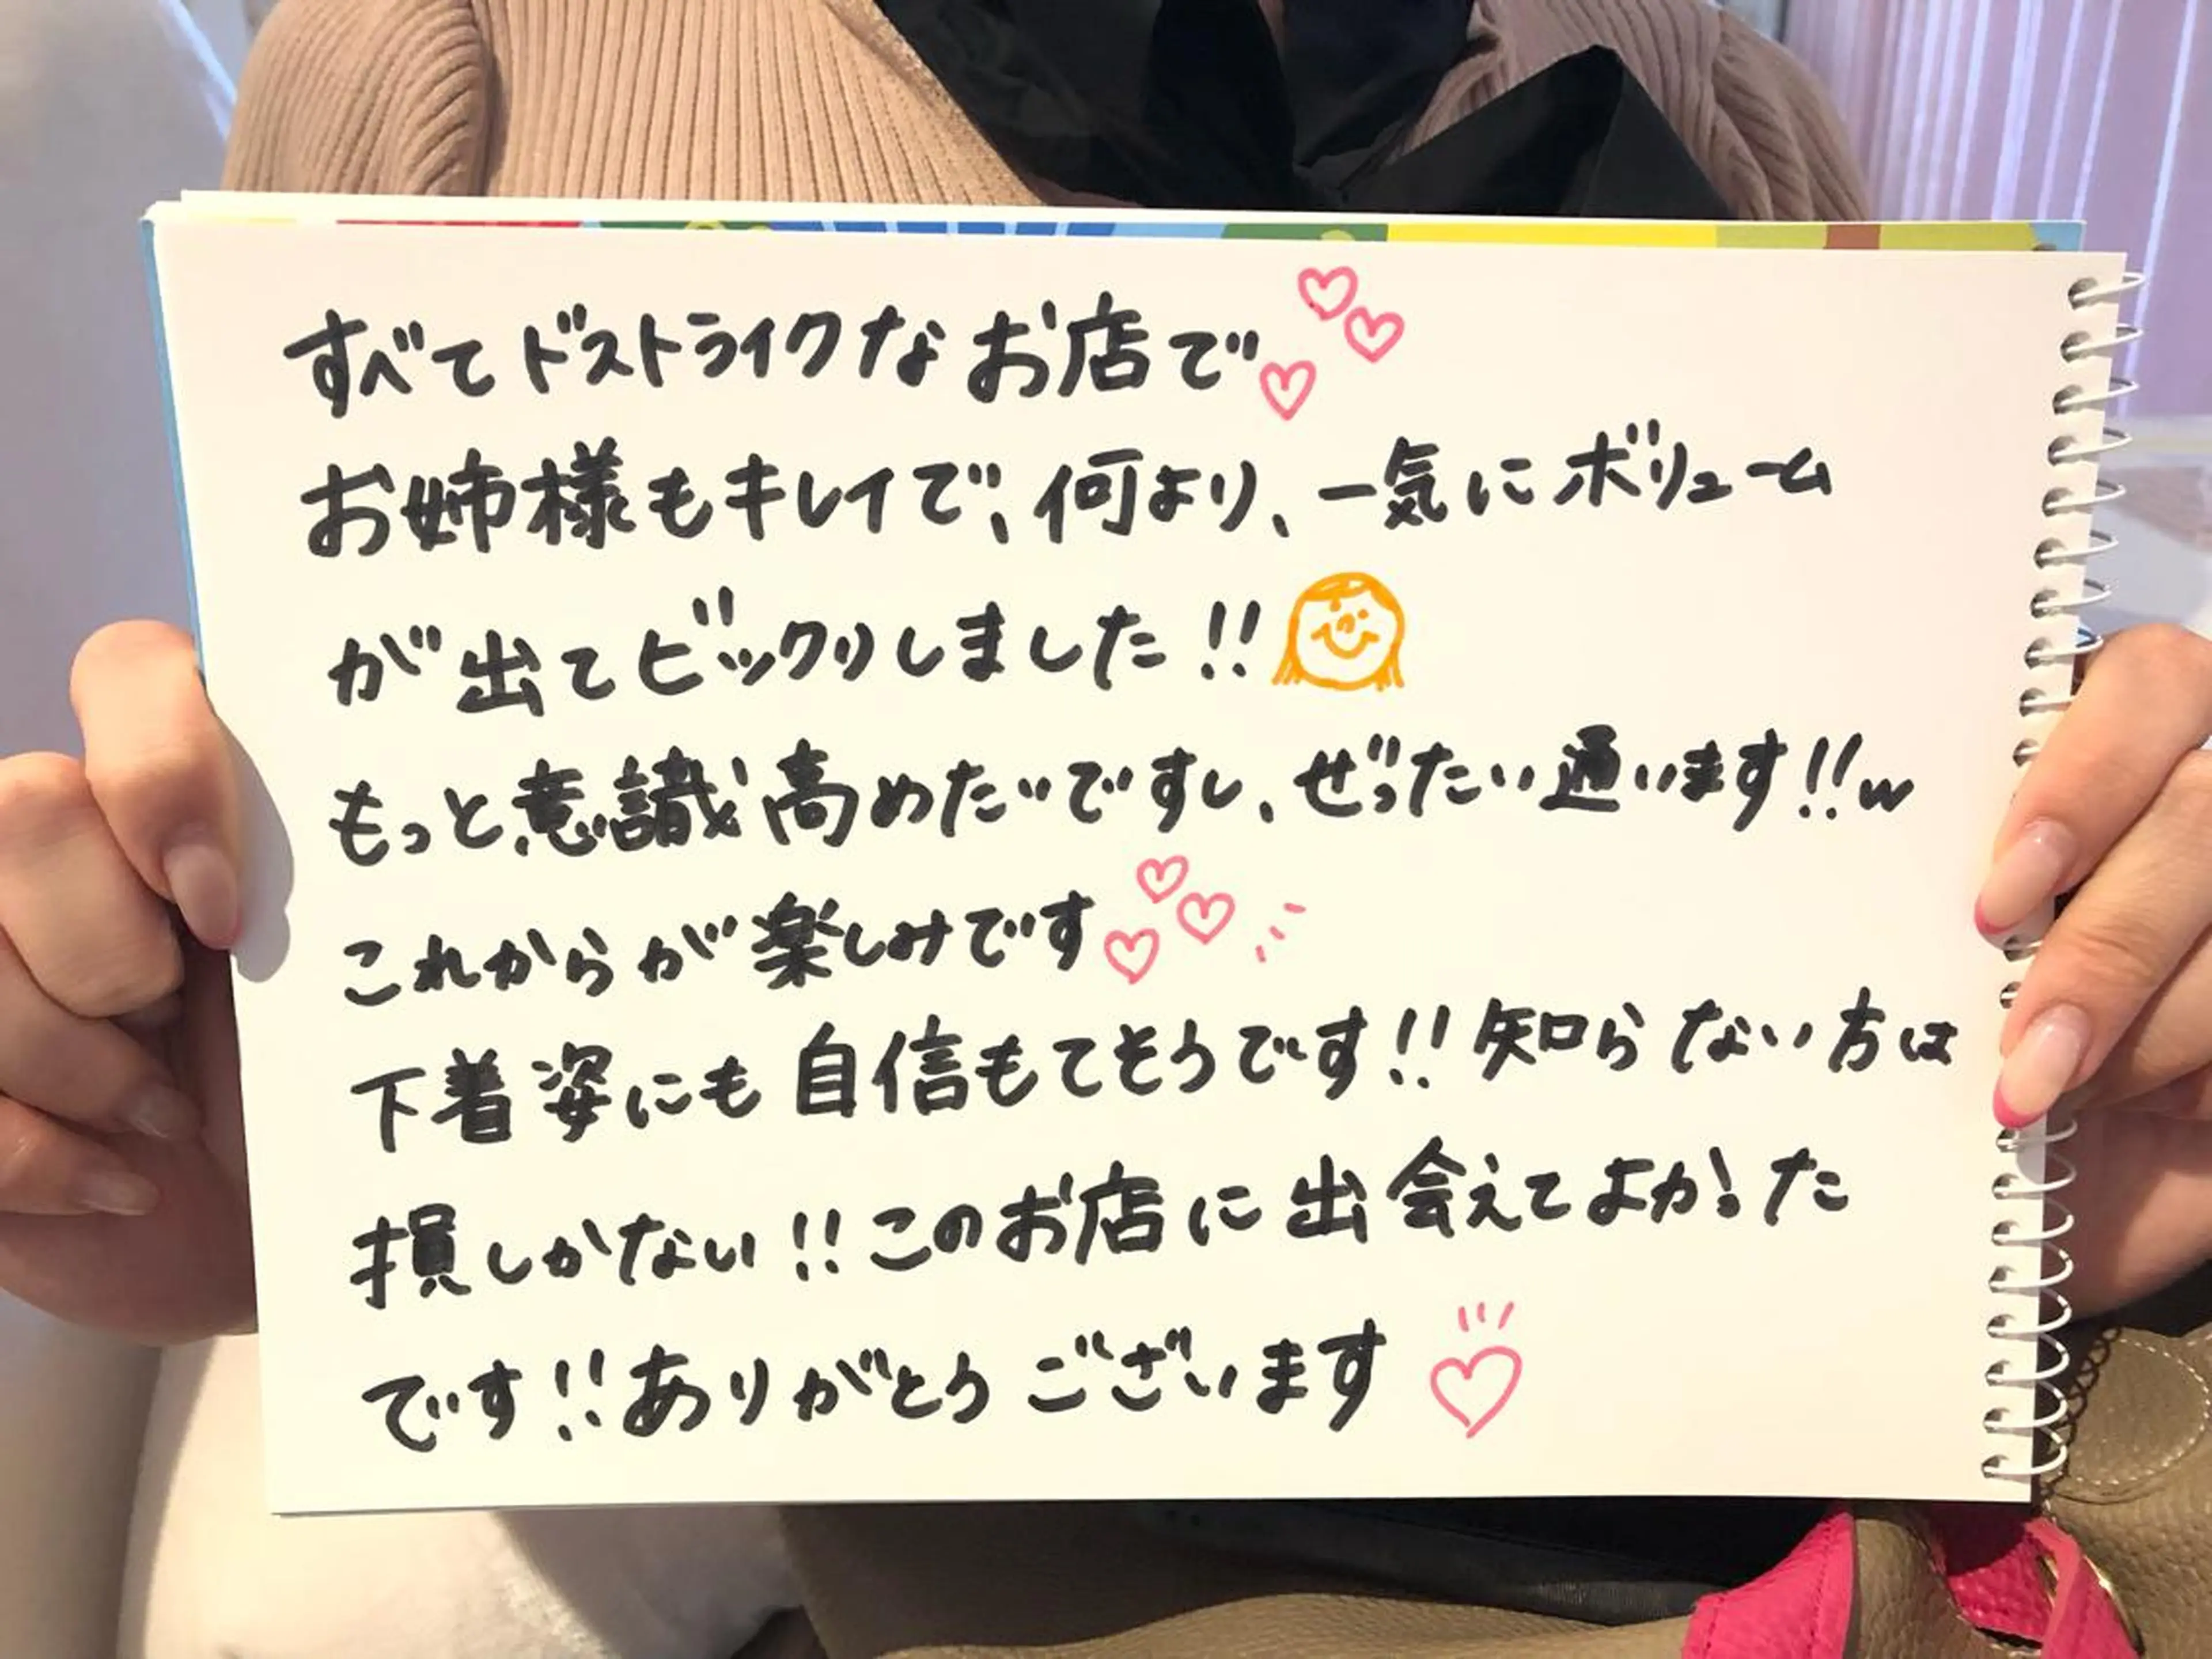 すべてドストライクなお店で♡♡♡
お姉様もキレイで、何より、一気にボリューム
が出てビックリしました!!
もっと意識高めたいですし、ぜったい通います!!w
これからが楽しみです♡♡♡
下着姿にも自信もてそうです!!知らない方は
損しかない!!このお店に出会えてよかった
です!!ありがとうございます♡